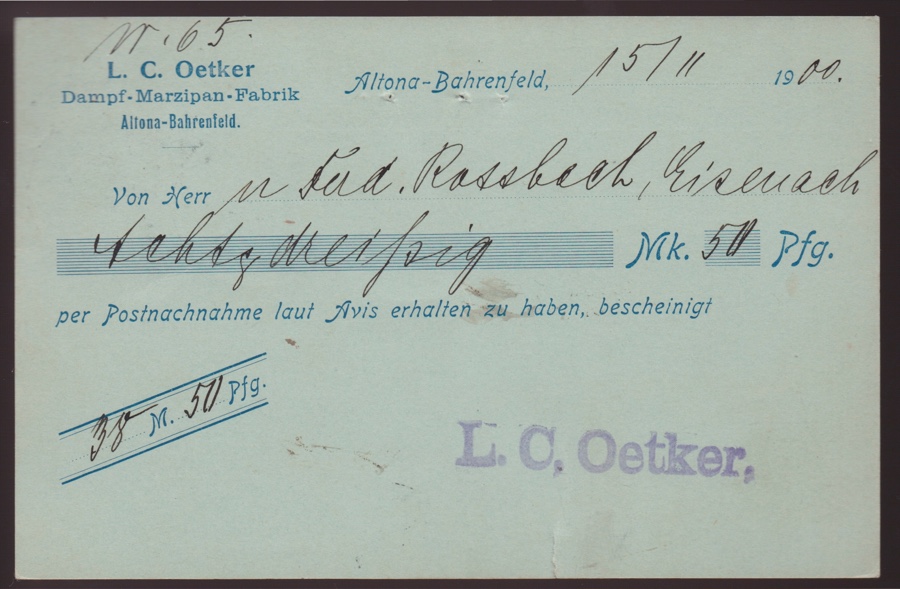 N. 65.
L. C. Oetker
Dampf-Marzipan-Fabrik
Altona-Bahrenfeld.
Altona-Bahrenfeld, 15/11 1900.
Von Herr n Ferd. Rossbach, Eisenach
Achtzdreißig Mk. 50 Pfg.
per Postnachnahme laut Avis erhalten zu haben, bescheinigt
38 M. 50 Pfg.
L. C. Oetker,